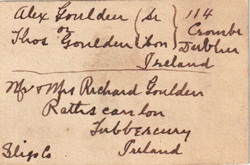 Alex Goulden Sr 114
Thos or Goulden Son Crombe
Dublin
Ireland
Mr & Mrs Richard Goulden
Rathscanlon
Tubbercury
Sligo Co Ireland